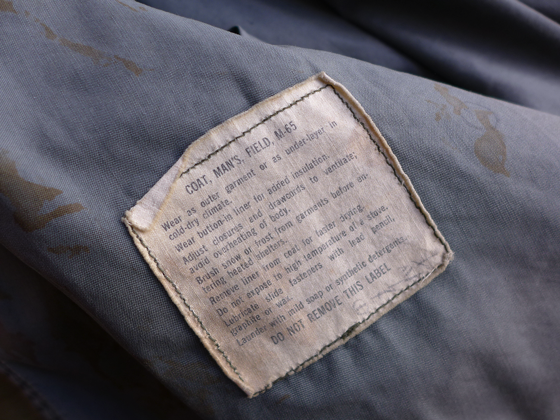 COAT, MAN'S, FIELD, M-65
Wear as outer garment or as under-layer in
cold-dry climate.
Wear button-in liner for added insulation.
Adjust closures and drawcords to ventilate;
avoid overheating of body.
Brush snow or frost from garments before en-
tering heated shelters.
Remove liner from coat for faster drying.
Do not expose to high temperature of a stove.
Lubricate slide fasteners with lead pencil,
graphite or wax.
Launder with mild soap or synthetic detergents.
DO NOT REMOVE THIS LABEL